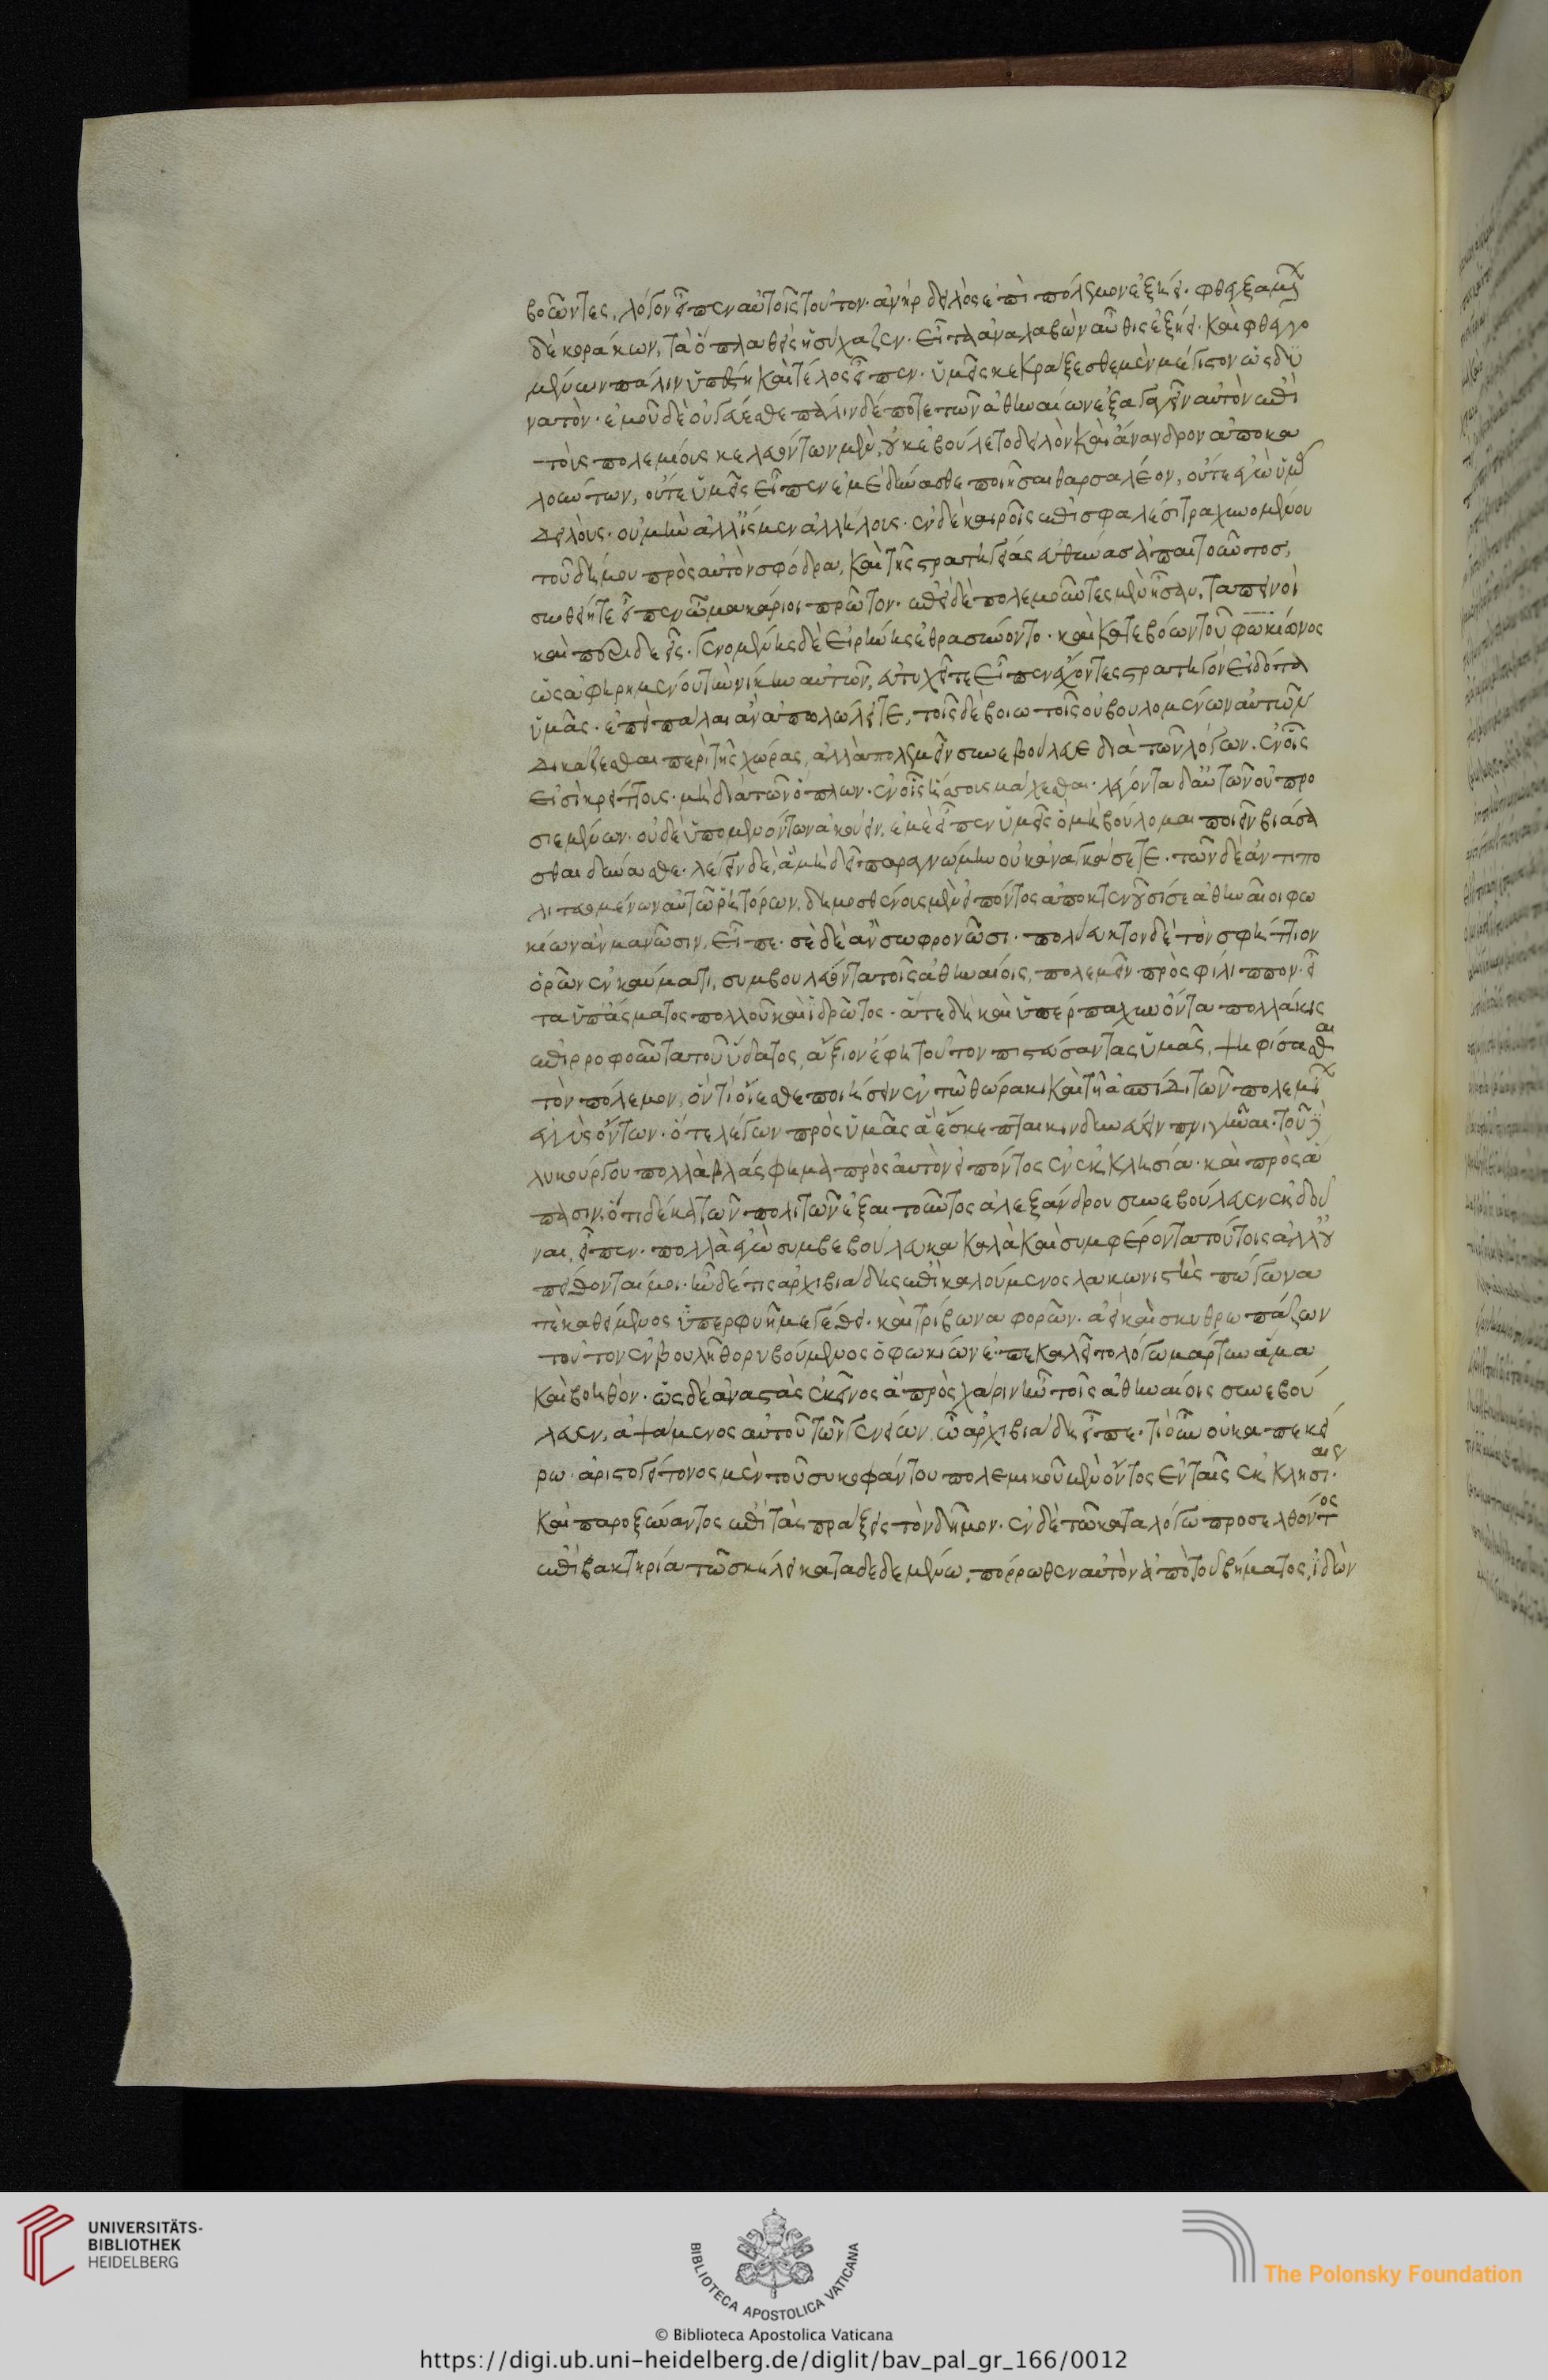 βοῶντες, λόγον εἶπεν αὐτοῖς τοῦτον· ἀνὴρ δειλὸς ἐπὶ πόλεμον ἐξῄει· φθεγξαμένων
δὲ κοράκων, τὰ ὅπλα θεὶς ἡσύχαζεν· εἶτα ἀναλαβὼν αὖθις ἐξῄει· καὶ φθεγγο
μένων πάλιν ὑπέστη καὶ τέλος εἶπεν· ὑμεῖς κεκράξεσθε μὲν μέγιστον ὡς δυ
νατόν· ἐμοῦ δὲ οὐ γεύσεσθε πάλιν δέ ποτε τῶν ἀθηναίων ἐξαγαγεῖν αὐτὸν ἐπὶ
τοὺς πολεμίους κελευόντων μὲν, οὐκ ἐβούλετο δειλὸν καὶ ἄνανδρον ἀποκα
λούντων, οὔτε ὑμεῖς εἶπεν ἐμὲ δύνασθε ποιῆσαι θαρσαλέον, οὔτε ἐγὼ ὑμᾶς
δειλούς· οὐ μὴν ἀλλ' ἴσμεν ἀλλήλους· ἐν δὲ καιροῖς ἐπισφαλέσι τραχυνομένου
τοῦ δήμου πρὸς αὐτὸν σφόδρα, καὶ τῆς στρατηγίας εὐθύνας ἀπαιτοῦντος,
σωθείητε εἶπεν ὦ μακάριοι πρῶτον· ἐπεὶ δὲ πολεμοῦντες μὲν ἦσαν, ταπεινοὶ
καὶ περιδεεῖς· γενομένης δὲ εἰρήνης ἐθρασύνοντο· καὶ κατεβόων τοῦ φωκίωνος
ὡς ἀφῃρημένου τὴν νίκην αὐτῶν, εὐτυχεῖτε εἶπεν ἔχοντες στρατηγὸν εἰδότα
ὑμᾶς· ἐπεὶ πάλαι ἂν ἀπωλώλειτε, τοῖς δὲ βοιωτοῖς οὐ βουλομένων αὐτῶν
δικάζεσθαι περὶ τῆς χώρας, ἀλλὰ πολεμεῖν συνεβούλευε διὰ τῶν λόγων· ἐν οἷς
εἰσὶ κρείττους· μὴ διὰ τῶν ὅπλων· ἐν οἷς ἥττους μάχεσθαι· λέγοντα δ' αὐτῶν οὐ προ
σιεμένων· οὐδὲ ὑπομενόντων ἀκούειν, ἐμὲ εἶπεν ὑμεῖς ὃ μὴ βούλομαι ποιεῖν βιάσα
σθαι δύνασθε· λέγειν δὲ, ἃ μὴ δεῖ παρὰ γνώμην οὐκ ἀναγκάσετε· τῶν δὲ ἀντιπο
λιτευομένων αὐτῷ ῥητόρων, δημοσθένους μὲν εἰπόντος ἀποκτενοῦσί σε ἀθηναῖοι φω
κίων ἂν μανῶσιν, εἶπε· σὲ δὲ ἂν σωφρονῶσι· πολύευκτον δὲ τὸν σφήττιον
ὁρῶν ἐν καύματι, συμβουλεύοντα τοῖς ἀθηναίοις, πολεμεῖν πρὸς φίλιππον· εἶ
τα ὑπ' ἄσματος πολλοῦ καὶ ἱδρῶτος· ἅτε δὴ καὶ ὑπέρπαχυν ὄντα πολλάκις
ἐπιρροφοῦντα τοῦ ὕδατος, ἄξιον ἔφη τούτῳ πιστεύσαντας ὑμᾶς, ψηφίσασθαι
τὸν πόλεμον, ὃν τί οἴεσθε ποιήσειν ἐν τῷ θώρακι καὶ τῇ ἀσπίδι τῶν πολεμίων
ἐγγὺς ὄντων· ὅτε λέγων πρὸς ὑμᾶς ἃ ἔσκεπται κινδυνεύειν πνιγῆναι· τοῦ δὲ
λυκούργου πολλὰ βλάσφημα πρὸς αὐτὸν εἰπόντος ἐν ἐκκλησίᾳ· καὶ πρὸς ἅ
πασιν, ὅτι δέκα τῶν πολιτῶν ἐξαιτοῦντος ἀλεξάνδρου συνεβούλευεν ἐκδοῦ
ναι, εἶπεν· πολλὰ ἐγὼ συμβεβούλευκα καλὰ καὶ συμφέροντα τούτοις ἀλλ' οὐ
πείθονταί μοι· ἦν δέ τις ἀρχιβιάδης ἐπικαλούμενος λακωνιστὴς πώγωνα
τε καθειμένος ὑπερφυῆ μεγέθει· καὶ τρίβωνα φορῶν· ἀεὶ καὶ σκυθρωπάζων
τοῦτον ἐν βουλῇ θορυβούμενος ὁ φωκίων ἐπεκαλεῖτο λόγῳ μάρτυν ἅμα
καὶ βοηθόν· ὡς δὲ ἀναστὰς ἐκεῖνος ἃ πρὸς χάριν ἦν τοῖς ἀθηναίοις συνεβού
λευεν, ἁψάμενος αὐτοῦ τῶν γενείων, ὦ ἀρχιβιάδη εἶπε· τί οὖν οὐκ ἀπεκεί
ρω· ἀριστογείτονος μὲν τοῦ συκοφάντου πολεμικοῦ μὲν ὄντος ἐν ταῖς ἐκκλησίαις·
καὶ παροξύναντος ἐπὶ τὰς πράξεις τὸν δῆμον· ἐν δὲ τῷ καταλόγῳ προσελθόντος
ἐπὶ βακτηρίᾳ τῷ σκέλει καταδεδεμένω, πόρρωθεν αὐτὸν ἀπὸ τοῦ βήματος, ἰδὼν
UNIVERSITÄTS-
BIBLIOTHEK
HEIDELBERG
BIBLIOTECA APOSTOLICA VATICANA
The Polonsky Foundation
© Biblioteca Apostolica Vaticana
https://digi.ub.uni-heidelberg.de/diglit/bav_pal_gr_166/0012